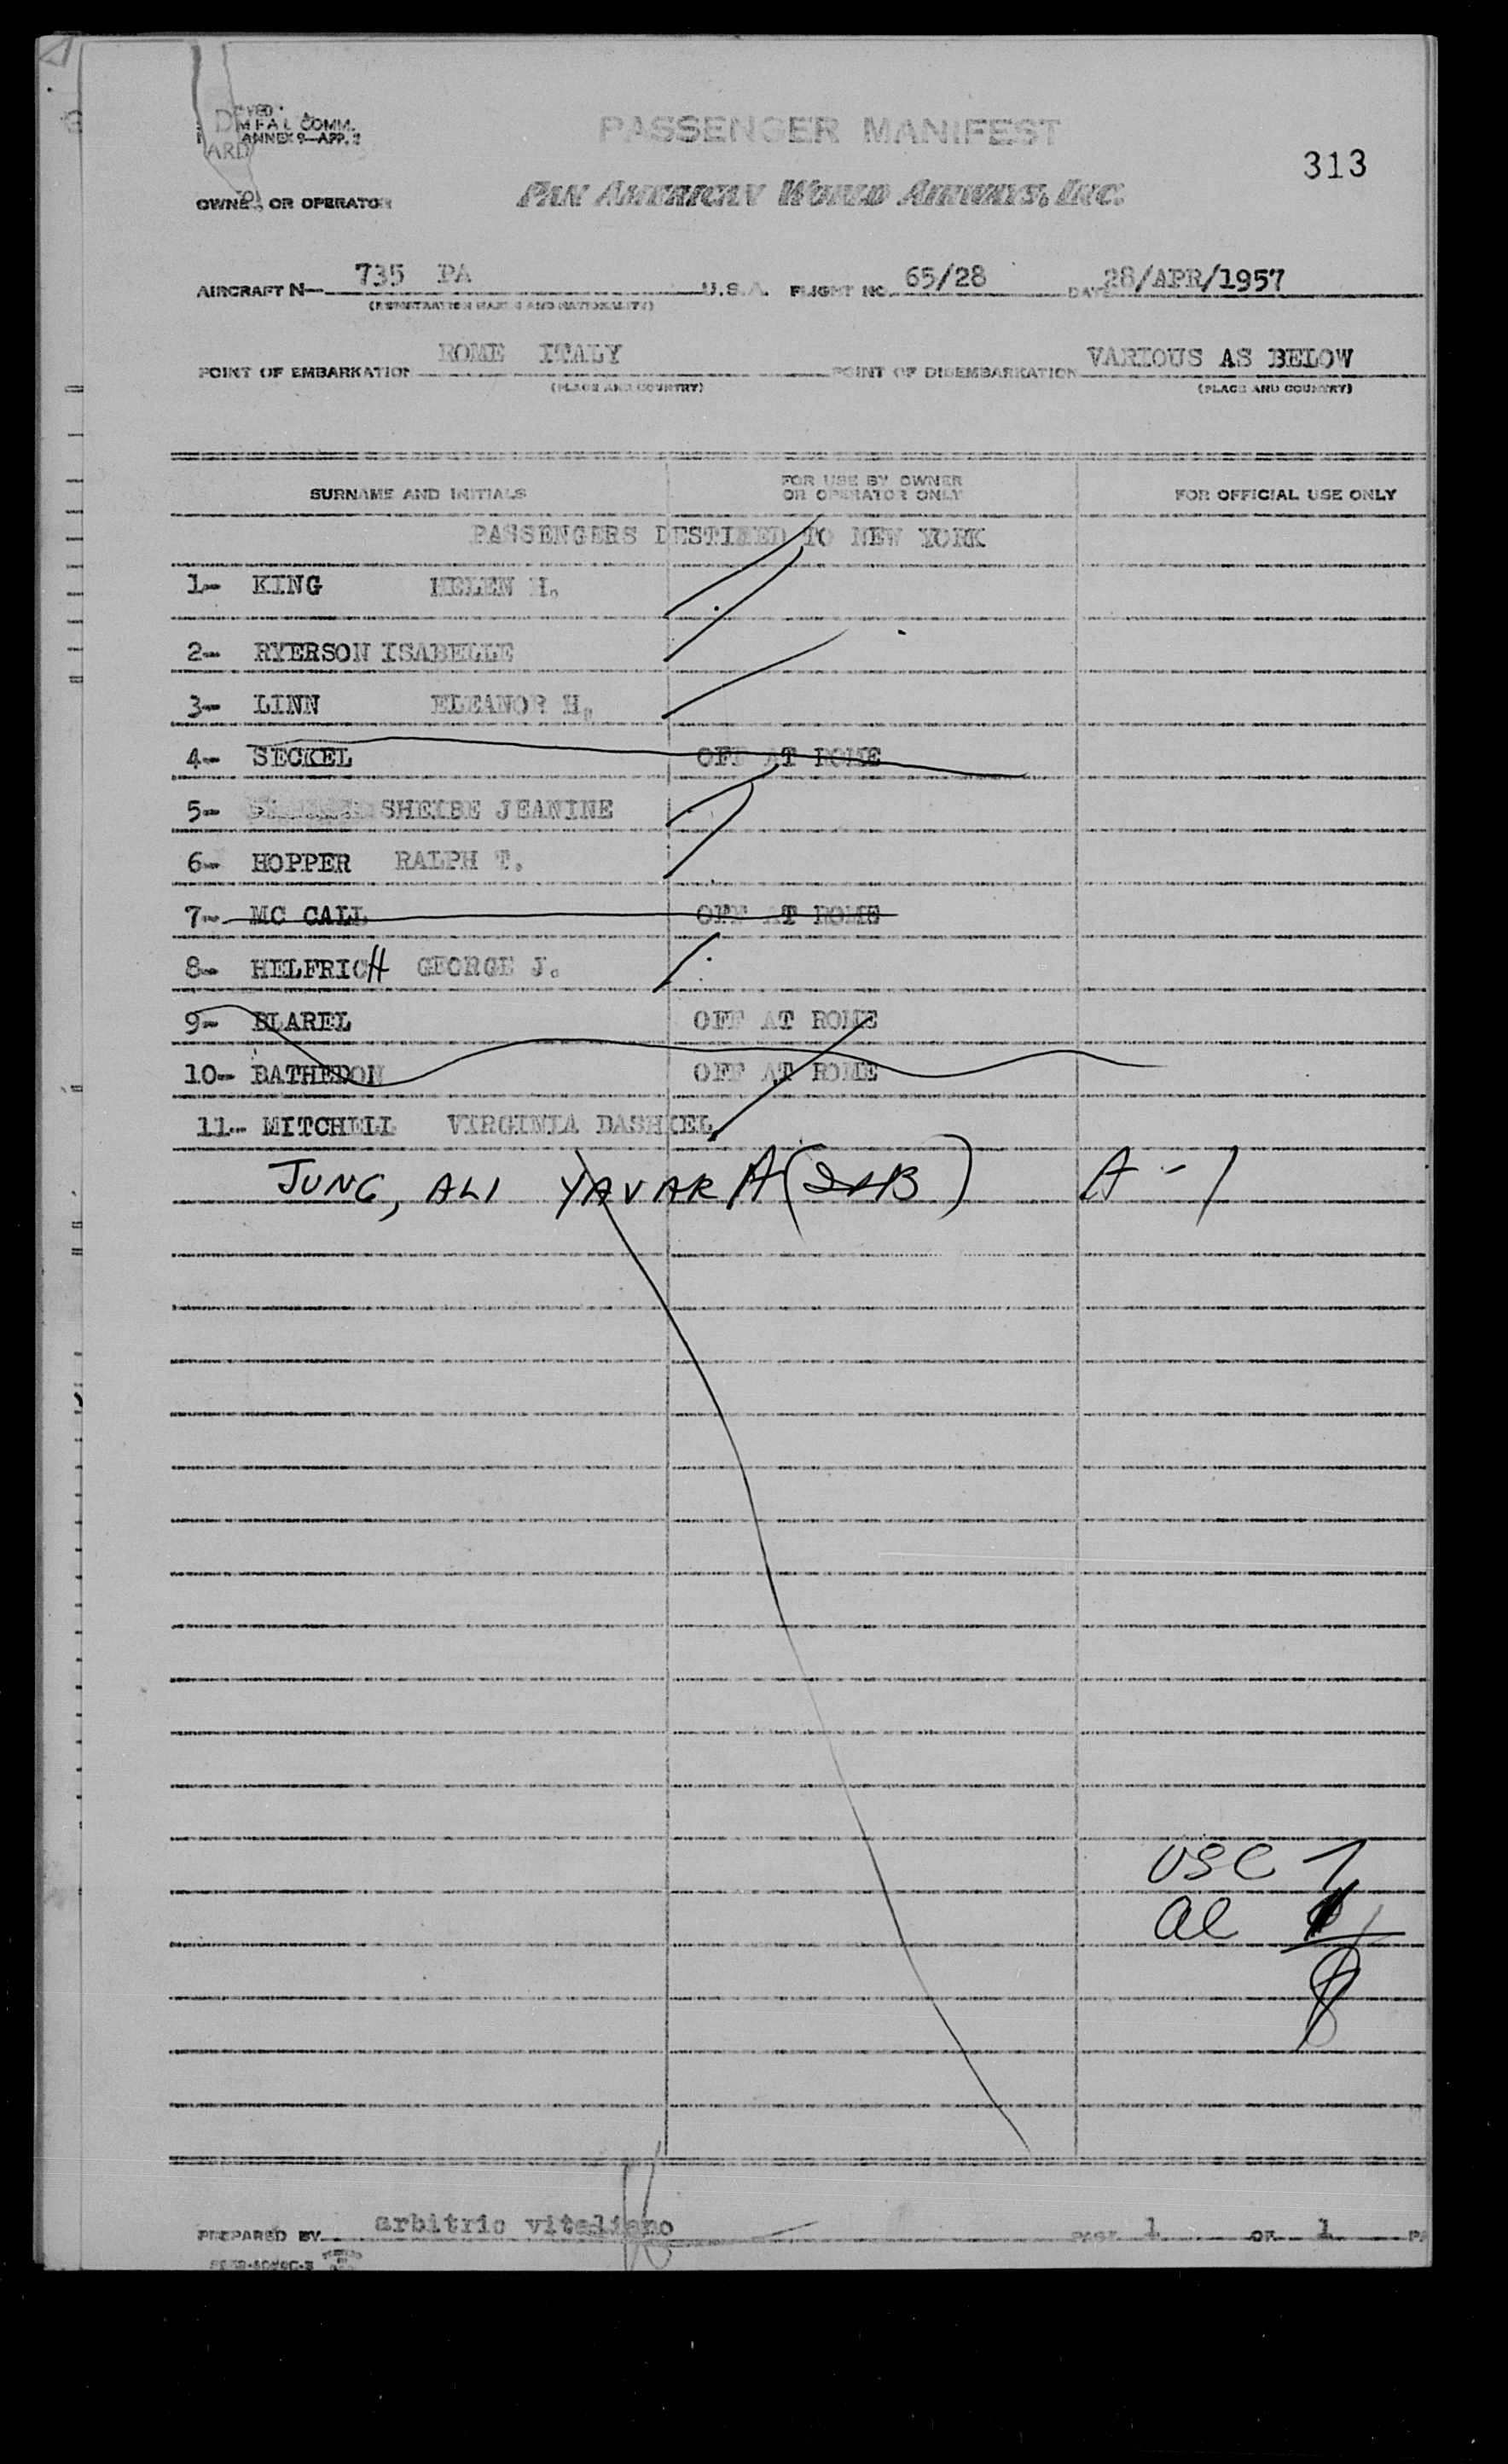 PASSENGER MANIFEST
313
M F A L COMM.
ANNEX 9—APP. 2
OWNER OR OPERATOR PAN AMERICAN WORLD AIRWAYS, INC.
AIRCRAFT N— 735 PA U.S.A. FLIGHT NO. 65/28 DATE 28/APR/1957
(REGISTRATION MARKS AND NATIONALITY)
POINT OF EMBARKATION ROME ITALY POINT OF DISEMBARKATION VARIOUS AS BELOW
(PLACE AND COUNTRY) (PLACE AND COUNTRY)
SURNAME AND INITIALS FOR USE BY OWNER OR OPERATOR ONLY FOR OFFICIAL USE ONLY
PASSENGERS DESTINED TO NEW YORK
1- KING HELEN H.
2- RYERSON ISABELLE
3- LINN ELEANOR H.
4- SECKEL OFF AT ROME
5- SHEIBE JEANINE
6- HOPPER RALPH T.
7- MC CALL OFF AT ROME
8- HELFRICH GEORGE J.
9- BLAREL OFF AT ROME
10- BATHEDON OFF AT ROME
11- MITCHELL VIRGINIA DASHIEL
JUNG, ALI YAVAR A A-1
USC 7
al
8
PREPARED BY arbitrio vitaliano PAGE 1 OF 1